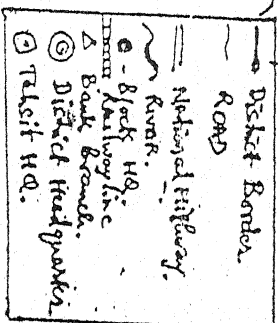 District Border.
ROAD
National Highway.
River.
- Block HQ.
Railwayline
Bank Branch.
District Headquarter.
Tehsil HQ.